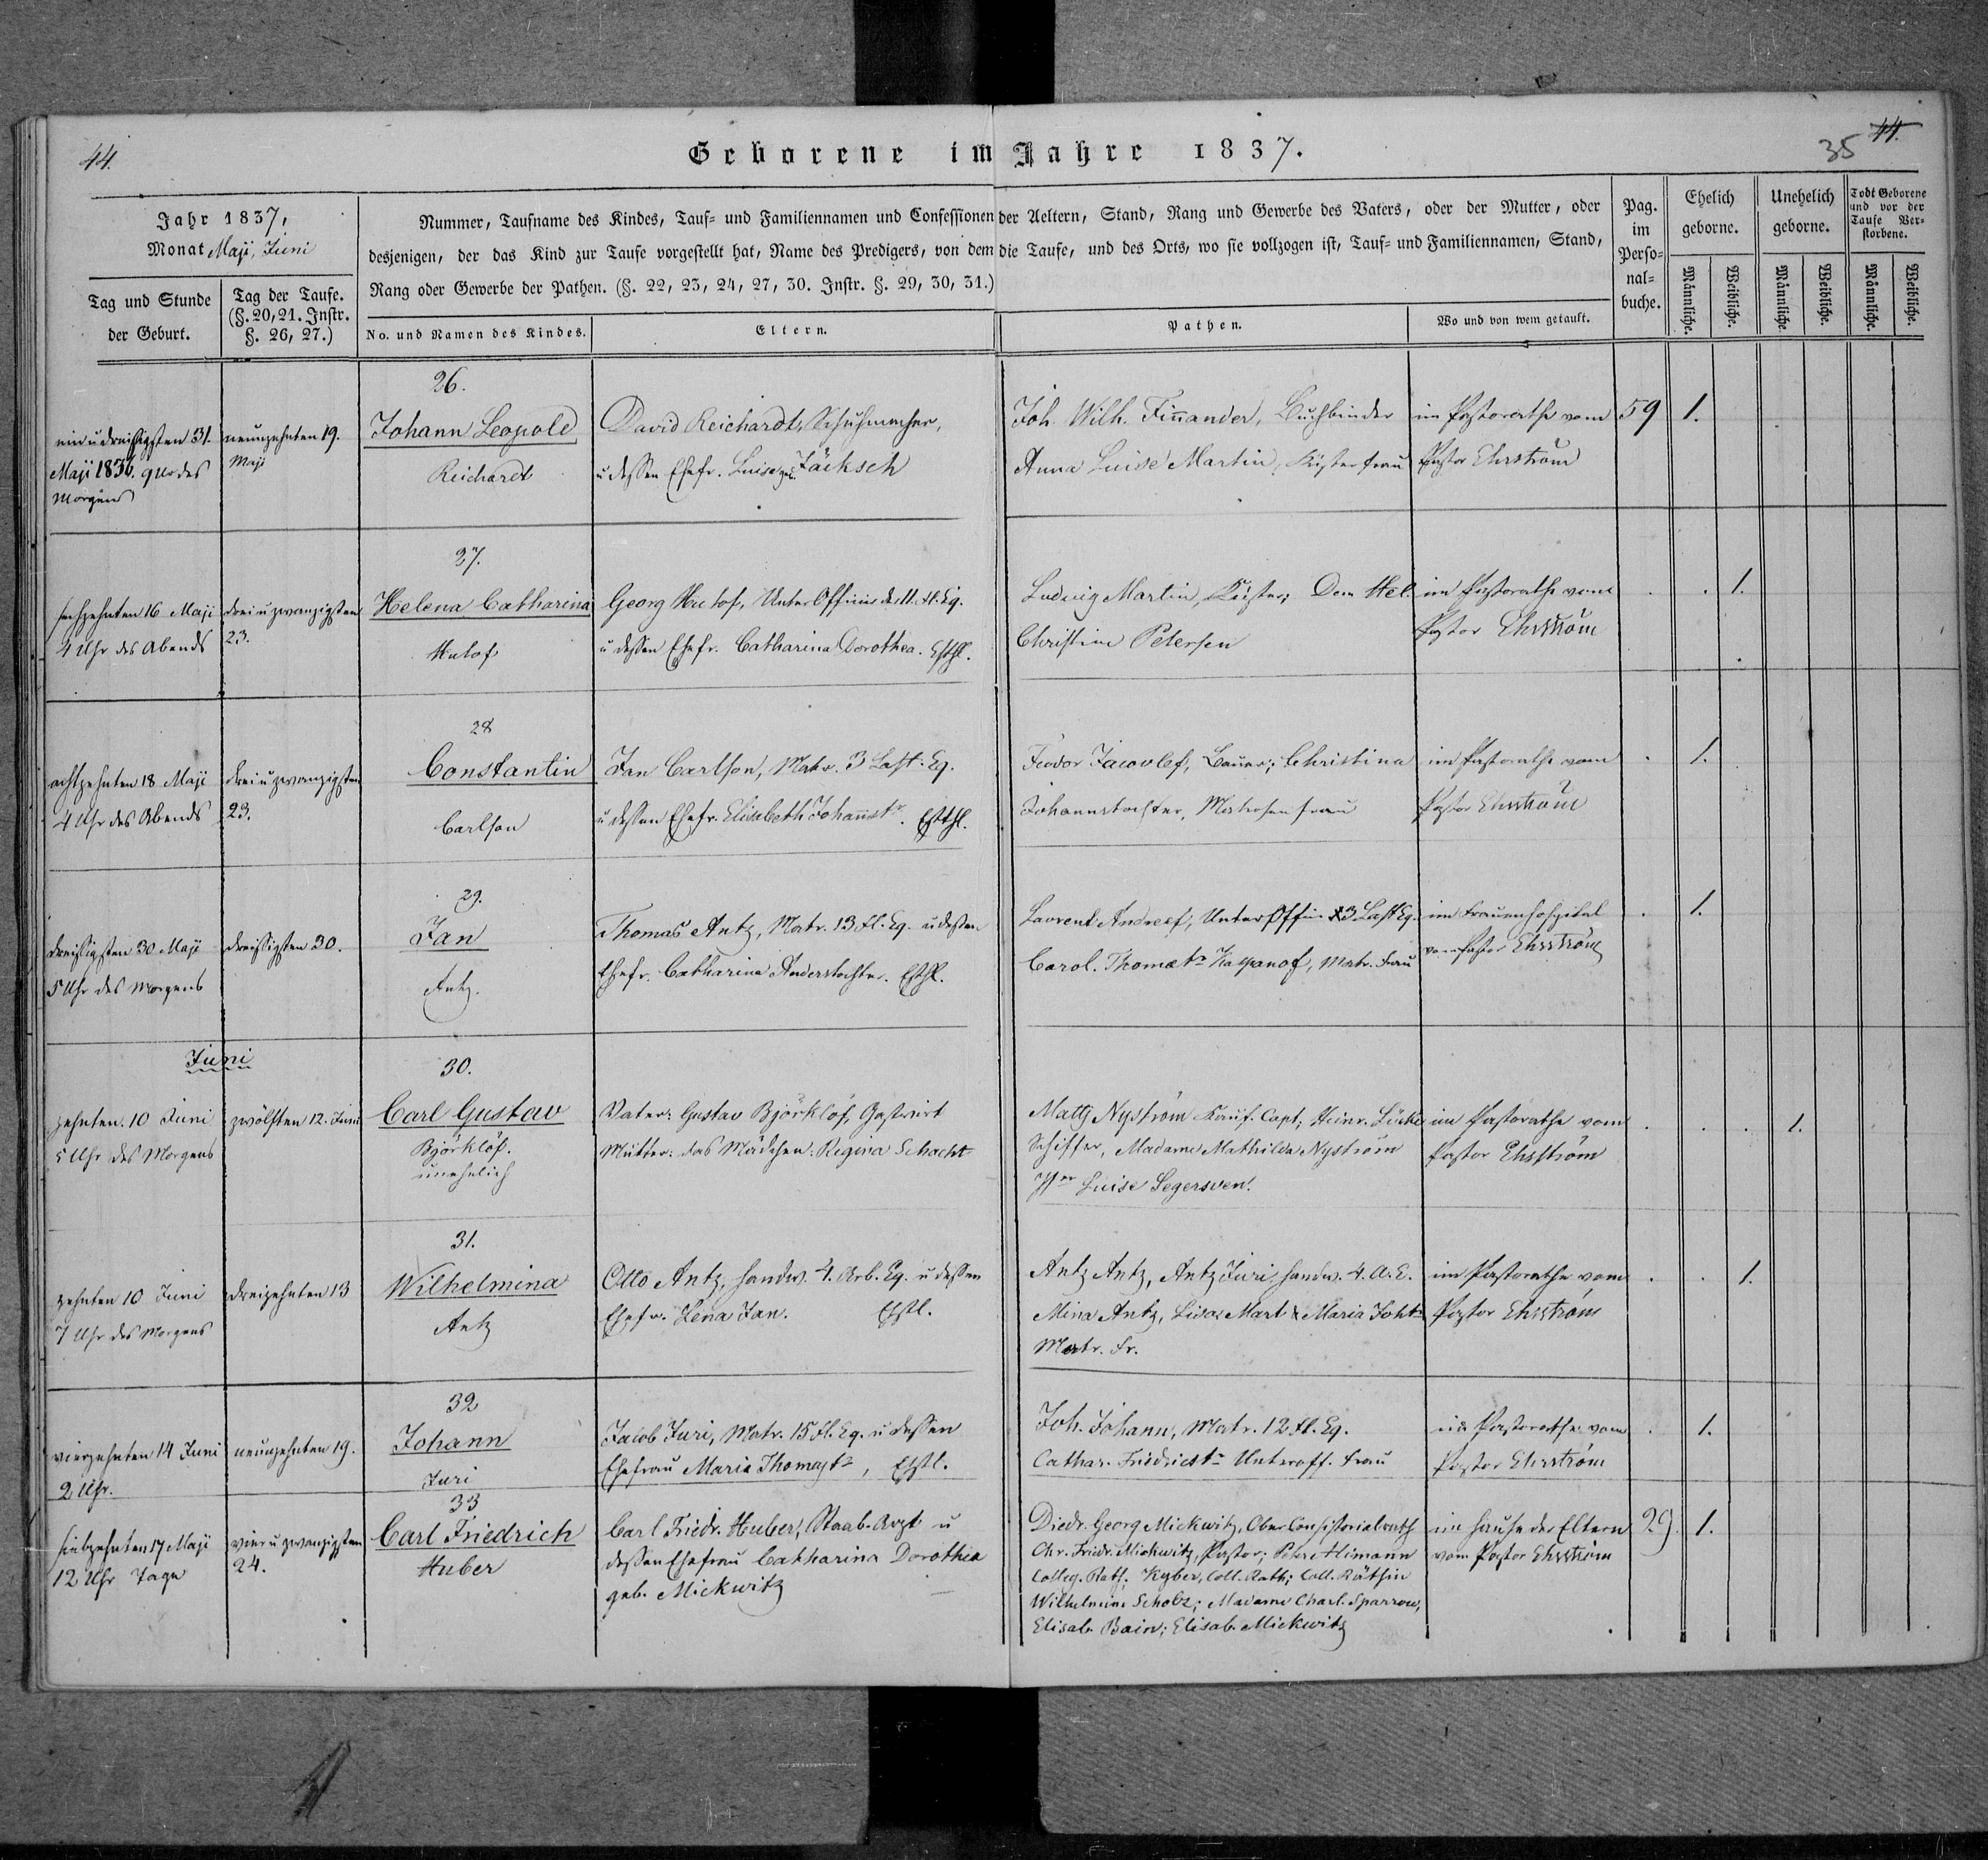 44.
Geborene im Jahre 1837.
35
44.
Jahr 1837,
Monat Maji, Juni
Nummer, Taufname des Kindes, Tauf- und Familiennamen und Confessionen der Aeltern, Stand, Rang und Gewerbe des Vaters, oder der Mutter, oder
desjenigen, der das Kind zur Taufe vorgestellt hat, Name des Predigers, von dem die Taufe, und des Orts, wo sie vollzogen ist, Tauf- und Familiennamen, Stand,
Rang oder Gewerbe der Pathen. (§. 22, 23, 24, 27, 30. Instr. §. 29, 30, 31.)
Pag.
im
Perso-
nal-
buche.
Ehelich
geborne.
Unehelich
geborne.
Todt Geborene
und vor der
Taufe Ver-
storbene.
Tag und Stunde
der Geburt.
Tag der Taufe.
(§. 20, 21. Instr.
§. 26, 27.)
No. und Namen des Kindes.
Eltern.
Pathen.
Wo und von wem getauft.
Männliche.
Weibliche.
Männliche.
Weibliche.
Männliche.
Weibliche.
ein u dreißigsten 31.
Maji 1836. 9 Uhr des
Morgens
neunzehnten 19.
Maji
26.
Johann Leopold
Reichardt
David Reichardt, Schuhmacher,
u dessen Ehefr. Luise geb. Jäcksch
Joh. Wilh. Finnander, Buchbinder
Anna Luise Martin, Küsterfrau
im Pastorathe vom
Pastor Ehrström
59
1.
sechzehnten 16 Maji
4 Uhr des Abends
drei u zwanzigsten
23.
27.
Helena Catharina
Hulof
Georg Hulof, Unter Officier der 11. Fl. Eq.
u dessen Ehefr. Catharina Dorothea. Esthl.
Ludwig Martin, Küster; Dem Hel.
Christine Petersen
im Pastorathe vom
Pastor Ehrström
1.
achtzehnten 18 Maji
4 Uhr des Abends
drei u zwanzigsten
23.
28
Constantin
Carlson
Jan Carlson, Matr. 3 Last. Eq.
u dessen Ehefr. Elisabeth Johannstr. Esthl.
Feodor Jacovlef, Bauer; Christina
Johannstochter, Matrosenfrau
im Pastorathe vom
Pastor Ehrström
1.
dreißigsten 30 Maji
5 Uhr des Morgens
dreißigsten 30.
29.
Jan
Antz.
Thomas Antz, Matr. 13 Fl. Eq. u dessen
Ehefr. Catharina Anderstochter. Esthl.
Lavrent Andreef, Unter Offic. 3 Last Eq.
Carol. Thomastr Kaspanof, Matr. Frau
im Frauenhospital
vom Pastor Ehrström
1.
Juni
zehnten 10 Juni
5 Uhr des Morgens
zwölften 12. Juni
30.
Carl Gustav
Björklöf.
unehelich
Vater: Gustav Björklöf, Gastwirt
Mutter: das Mädchen: Regina Schacht
Matth Nyström Kauf. Capt; Heinr. Lücke
Schiffer, Madame Mathilda Nyström
Luise Segersven.
im Pastorathe vom
Pastor Ehrström
1.
zehnten 10 Juni
7 Uhr des Morgens
dreizehnten 13
31.
Wilhelmina
Antz
Otto Antz, Handw. 4. Arb. Eq. u dessen
Ehefr. Lena Jan. Esthl.
Antz Antz, Antz Juri, Handw. 4. A. E.
Mina Antz, Lisa Mart & Maria Joh.
Matr. Fr.
im Pastorathe vom
Pastor Ehrström
1.
vierzehnten 14 Juni
2 Uhr.
neunzehnten 19.
32
Johann
Juri
Jacob Juri, Matr. 15 Fl. Eq. u dessen
Ehefrau Maria Thomastr, Esthl.
Joh. Johann, Matr. 12 Fl. Eq.
Cathar. Friedrichstr Unteroff. Frau
im Pastorathe vom
Pastor Ehrström
1.
siebzehnten 17 Maji
12 Uhr Tage
vier u zwanzigsten
24.
33
Carl Friedrich
Huber
Carl Friedr. Huber, Staab-Arzt u
dessen Ehefrau Catharina Dorothea
geb. Mickwitz
Diedr. Georg Mickwitz, Ober Consistorialrath
Chr. Friedr. Mickwitz, Pastor; Peter Himann
Colleg. Rath; Kyber, Coll. Rath; Coll. Räthin
Wilhelmine Scholz; Madame Charl. Sparrow,
Elisab. Bain; Elisab. Mickwitz
im Hause der Eltern
vom Pastor Ehrström
29.
1.